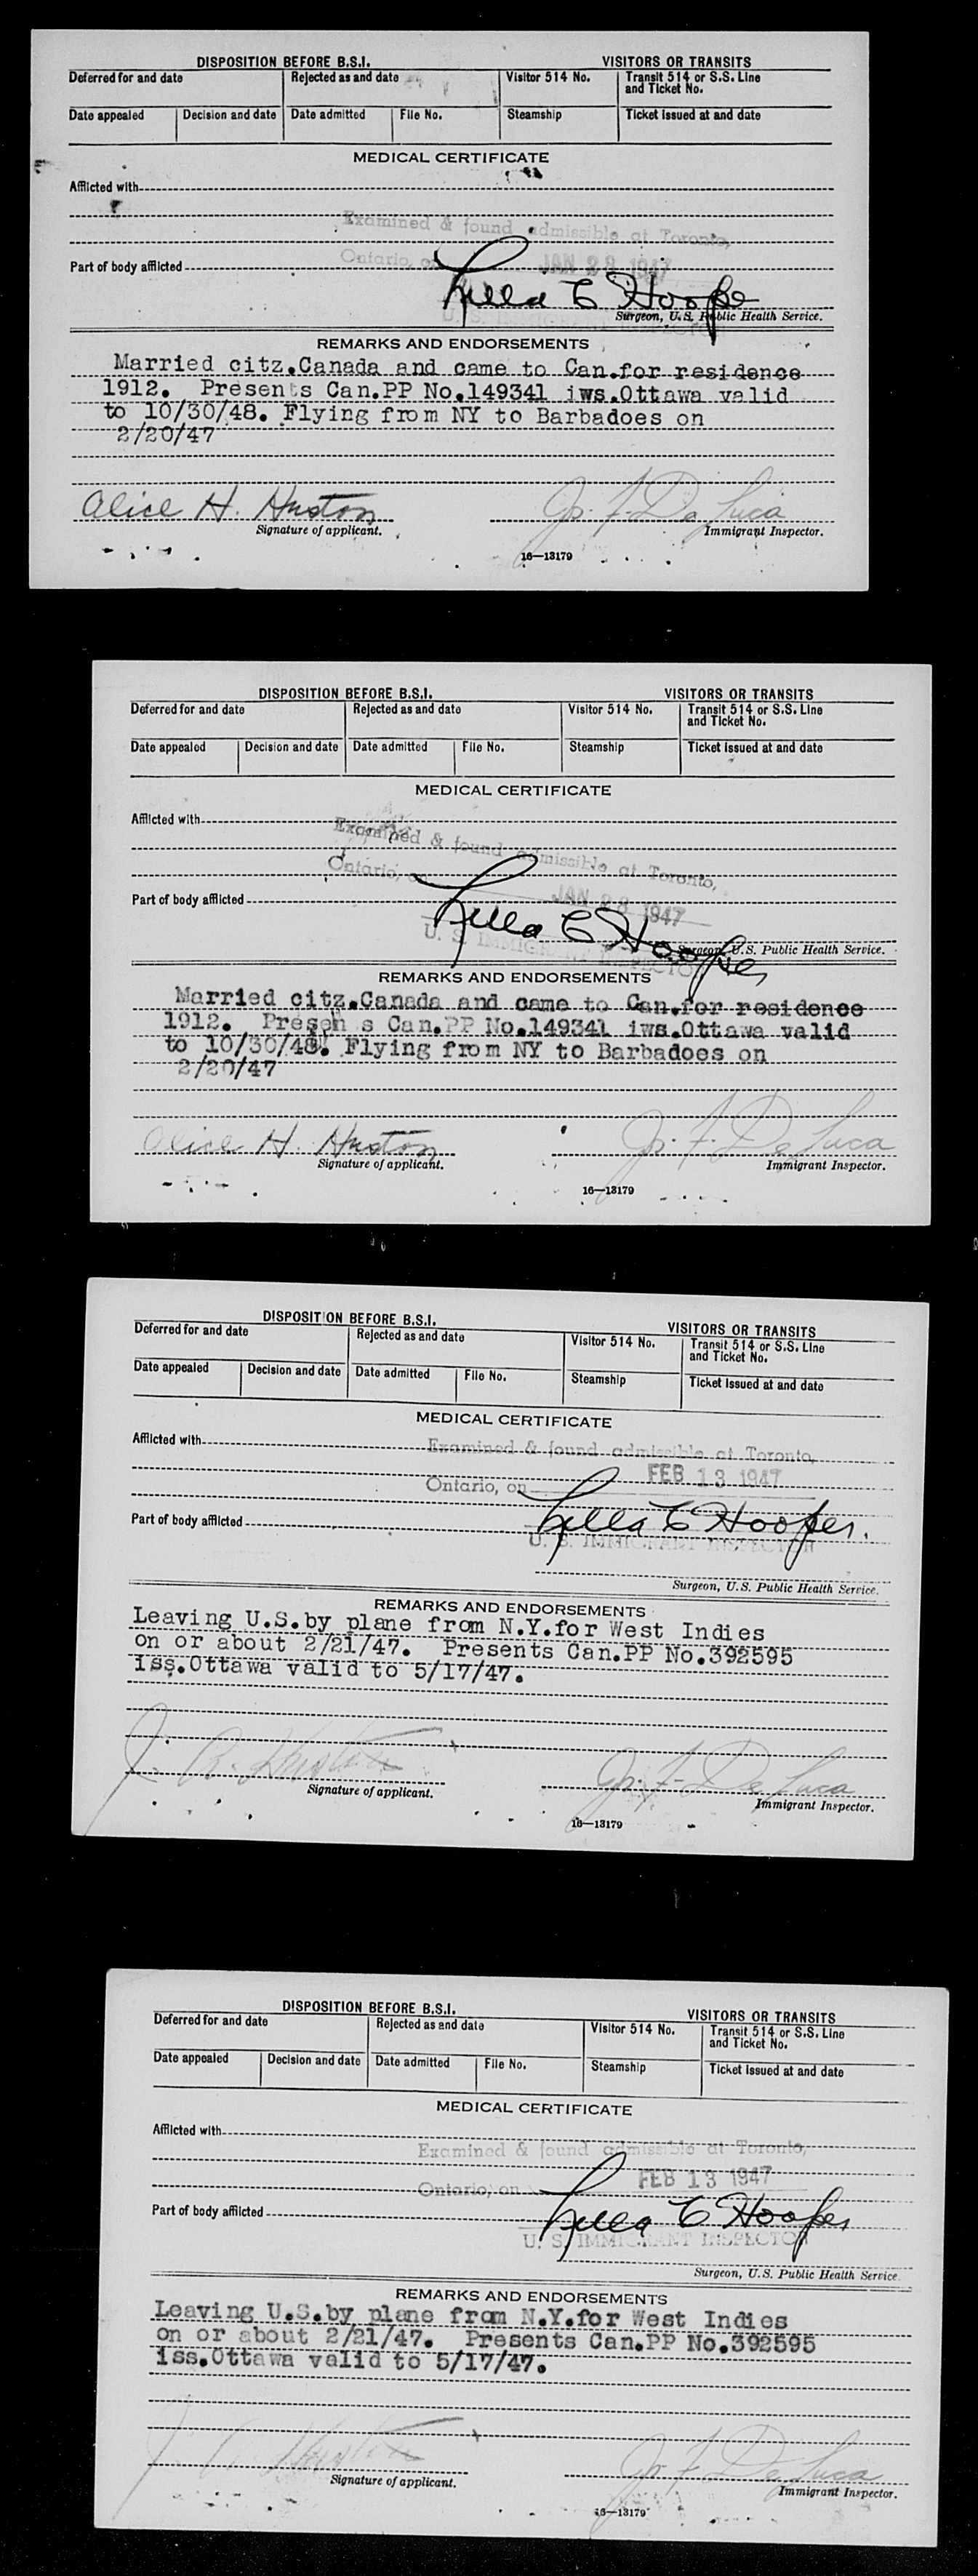 DISPOSITION BEFORE B.S.I. VISITORS OR TRANSITS
Deferred for and date Rejected as and date Visitor 514 No. Transit 514 or S.S. Line
and Ticket No.
Date appealed Decision and date Date admitted File No. Steamship Ticket issued at and date
MEDICAL CERTIFICATE
Afflicted with
Examined & found admissible at Toronto,
Ontario, on JAN 28 1947
Part of body afflicted
Lella E Hoope
Surgeon, U.S. Public Health Service.
REMARKS AND ENDORSEMENTS
Married citz.Canada and came to Can.for residence
1912. Presents Can.PP No.149341 iws.Ottawa valid
to 10/30/48. Flying from NY to Barbadoes on
2/20/47
Alice H. Huston Jp. F. De Luca
Signature of applicant. Immigrant Inspector.
16—13179
DISPOSITION BEFORE B.S.I. VISITORS OR TRANSITS
Deferred for and date Rejected as and date Visitor 514 No. Transit 514 or S.S. Line
and Ticket No.
Date appealed Decision and date Date admitted File No. Steamship Ticket issued at and date
MEDICAL CERTIFICATE
Afflicted with
Examined & found admissible at Toronto,
Ontario, on JAN 28 1947
Part of body afflicted
Lella E Hooper
U. S. IMMIGRANT INSPECTOR
Surgeon, U.S. Public Health Service.
REMARKS AND ENDORSEMENTS
Married citz.Canada and came to Can.for residence
1912. Presen s Can.PP No.149341 iws.Ottawa valid
to 10/30/48. Flying from NY to Barbadoes on
2/20/47
Alice H. Huston Jp. F. De Luca
Signature of applicant. Immigrant Inspector.
16—13179
DISPOSITION BEFORE B.S.I. VISITORS OR TRANSITS
Deferred for and date Rejected as and date Visitor 514 No. Transit 514 or S.S. Line
and Ticket No.
Date appealed Decision and date Date admitted File No. Steamship Ticket issued at and date
MEDICAL CERTIFICATE
Afflicted with
Examined & found admissible at Toronto,
FEB 13 1947
Ontario, on
Part of body afflicted
Lella E Hooper.
U. S. IMMIGRANT INSPECTOR
Surgeon, U.S. Public Health Service.
REMARKS AND ENDORSEMENTS
Leaving U.S.by plane from N.Y.for West Indies
on or about 2/21/47. Presents Can.PP No.392595
iss.Ottawa valid to 5/17/47.
J. A. Huston Jp. F. De Luca
Signature of applicant. Immigrant Inspector.
16—13179
DISPOSITION BEFORE B.S.I. VISITORS OR TRANSITS
Deferred for and date Rejected as and date Visitor 514 No. Transit 514 or S.S. Line
and Ticket No.
Date appealed Decision and date Date admitted File No. Steamship Ticket issued at and date
MEDICAL CERTIFICATE
Afflicted with
Examined & found admissible at Toronto,
FEB 13 1947
Ontario, on
Part of body afflicted
Lella E Hooper
U. S. IMMIGRANT INSPECTOR
Surgeon, U.S. Public Health Service.
REMARKS AND ENDORSEMENTS
Leaving U.S.by plane from N.Y.for West Indies
on or about 2/21/47. Presents Can.PP No.392595
iss.Ottawa valid to 5/17/47.
Huston Jp. F. De Luca
Signature of applicant. Immigrant Inspector.
16—13179